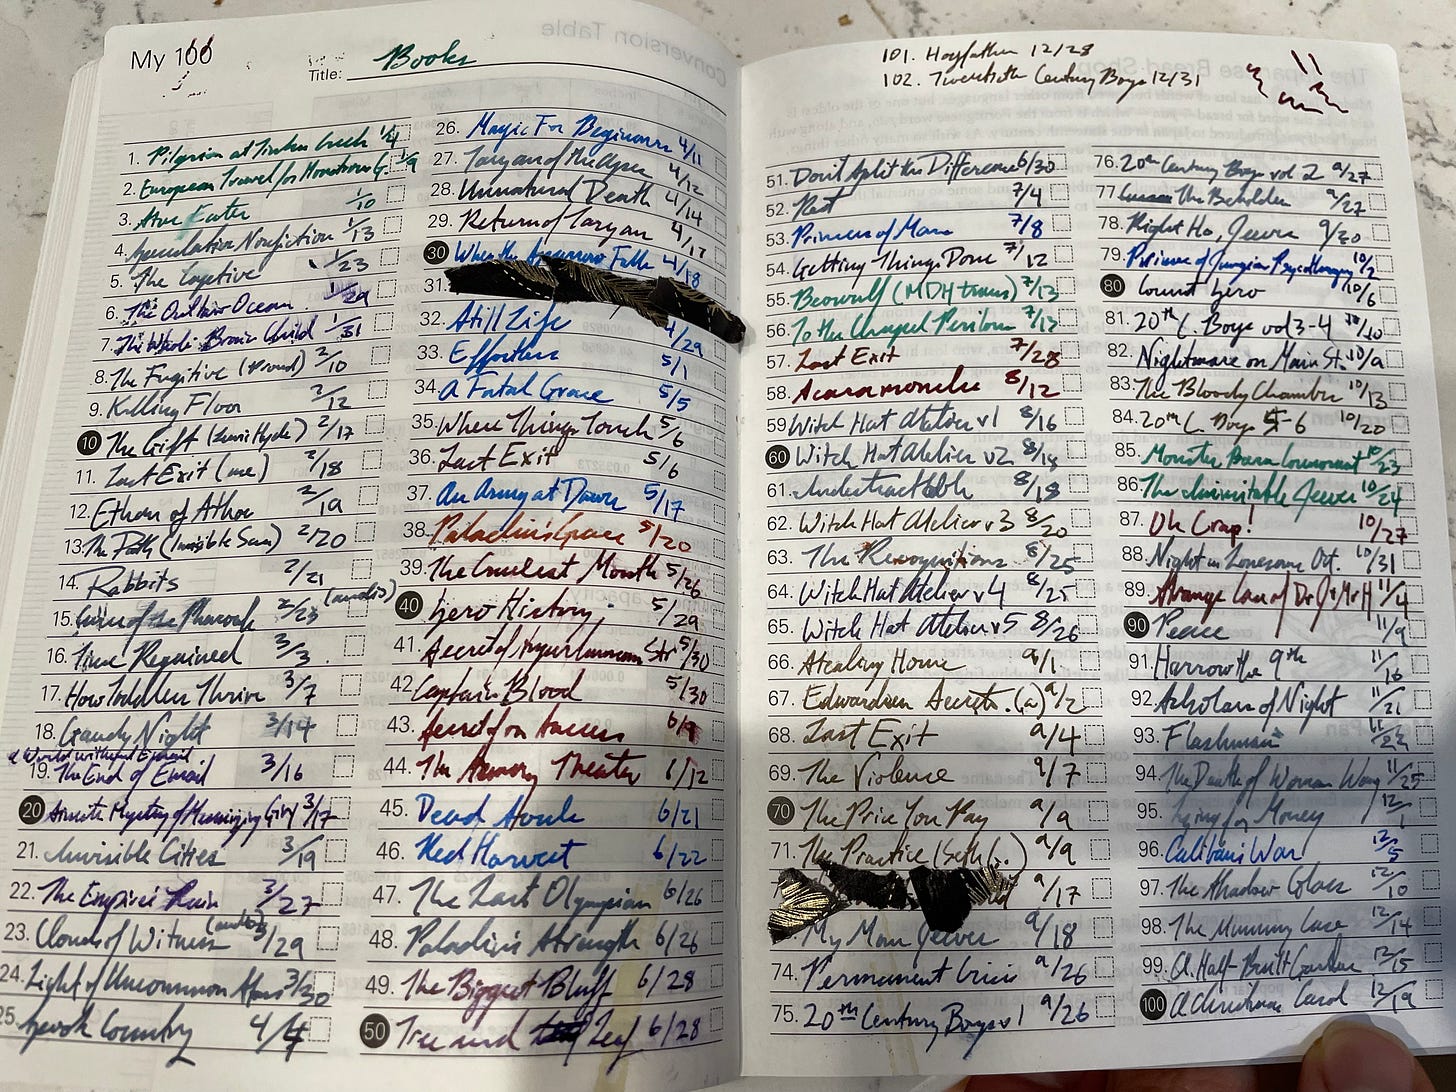 My 100
Title: Books
1. Pilgrim at Tinker Creek 1/4
2. European Travel for Monstrous G. 1/9
3. Star Eater 1/10
4. Speculative Nonfiction 1/13
5. The Captive 1/23
6. The Outlaw Ocean 1/29
7. The Whole-Brain Child 1/31
8. The Fugitive (Proust) 2/10
9. Killing Floor 2/12
10 The Gift (Lewis Hyde) 2/17
11. Last Exit (me) 2/18
12. Ethan of Athos 2/19
13. The Path (Invisible Sun) 2/20
14. Rabbits 2/21
15. of the Pharaoh 2/23 (audio)
16. Time Regained 3/3
17. How Toddlers Thrive 3/7
18. Gaudy Night 3/14
a World without Email
19. The End of Email 3/16
20 Mystery of 3/17
21. Invisible Cities 3/19
22. The Empire's Ruin 3/27
23. Clouds of Witness (audio) 3/29
24. Light of Uncommon Stars 3/30
25. Spook Country 4/4
26. Magic For Beginners 4/11
27. Tarzan of the Apes 4/12
28. Unnatural Death 4/14
29. Return of Tarzan 4/17
30 When the Sparrow Falls 4/18
31.
32. Still Life 4/29
33. Effortless 5/1
34. A Fatal Grace 5/5
35. Where Things Touch 5/6
36. Last Exit 5/6
37. An Army at Dawn 5/17
38. Paladin's Grace 5/20
39. The Cruelest Month 5/26
40 Zero History 5/29
41. Secret of Str 5/30
42. Captain Blood 5/30
43. Secret for Success
44. The Armory Theater 6/12
45. Dead Souls 6/21
46. Red Harvest 6/22
47. The Last Olympian 6/26
48. Paladin's Strength 6/26
49. The Biggest Bluff 6/28
50 Tree and Leaf 6/28
101. Hogfather 12/28
102. Twentieth Century Boys 12/31
51. Don't Split the Difference 6/30
52. Rest 7/4
53. Princess of Mars 7/8
54. Getting Things Done 7/12
55. Beowulf (MDH trans) 7/13
56. To the Chapel Perilous 7/13
57. Last Exit 7/28
58. Scaramouche 8/12
59 Witch Hat Atelier v1 8/16
60 Witch Hat Atelier v2 8/18
61. Indestructible 8/18
62. Witch Hat Atelier v3 8/20
63. The Recognitions 8/25
64. Witch Hat Atelier v4 8/25
65. Witch Hat Atelier v5 8/26
66. Stealing Home 9/1
67. Edwardian Secrets. (a) 9/2
68. Last Exit 9/4
69. The Violence 9/7
70 The Price You Pay 9/9
71. The Practice (Seth G.) 9/9
9/17
My Man Jeeves 9/18
74. Permanent Crisis 9/26
75. 20th Century Boys v1 9/26
76. 20th Century Boys vol 2 9/27
77. The Beholder 9/27
78. Right Ho, Jeeves 9/30
79. of Jungian Psychotherapy 10/2
80 Count Zero 10/6
81. 20th C. Boys vol 3-4 10/10
82. Nightmare on Main St. 10/9
83. The Bloody Chamber 10/13
84. 20th C. Boys 5-6 10/20
85. Monster Baru Cormorant 10/23
86. The Inimitable Jeeves 10/24
87. Oh Crap! 10/27
88. Night in Lonesome Oct. 10/31
89. Strange Case of Dr J & Mr H 11/4
90 Peace 11/9
91. Harrow the 9th 11/16
92. Scholars of Night 11/21
93. Flashman
94. The Death of Woman Wang 11/25
95. Lying for Money 12/1
96. Caliban's War 12/5
97. The Shadow Glass 12/10
98. The Mummy Case 12/14
99. A Half-Built Garden 12/15
100 A Christmas Carol 12/19